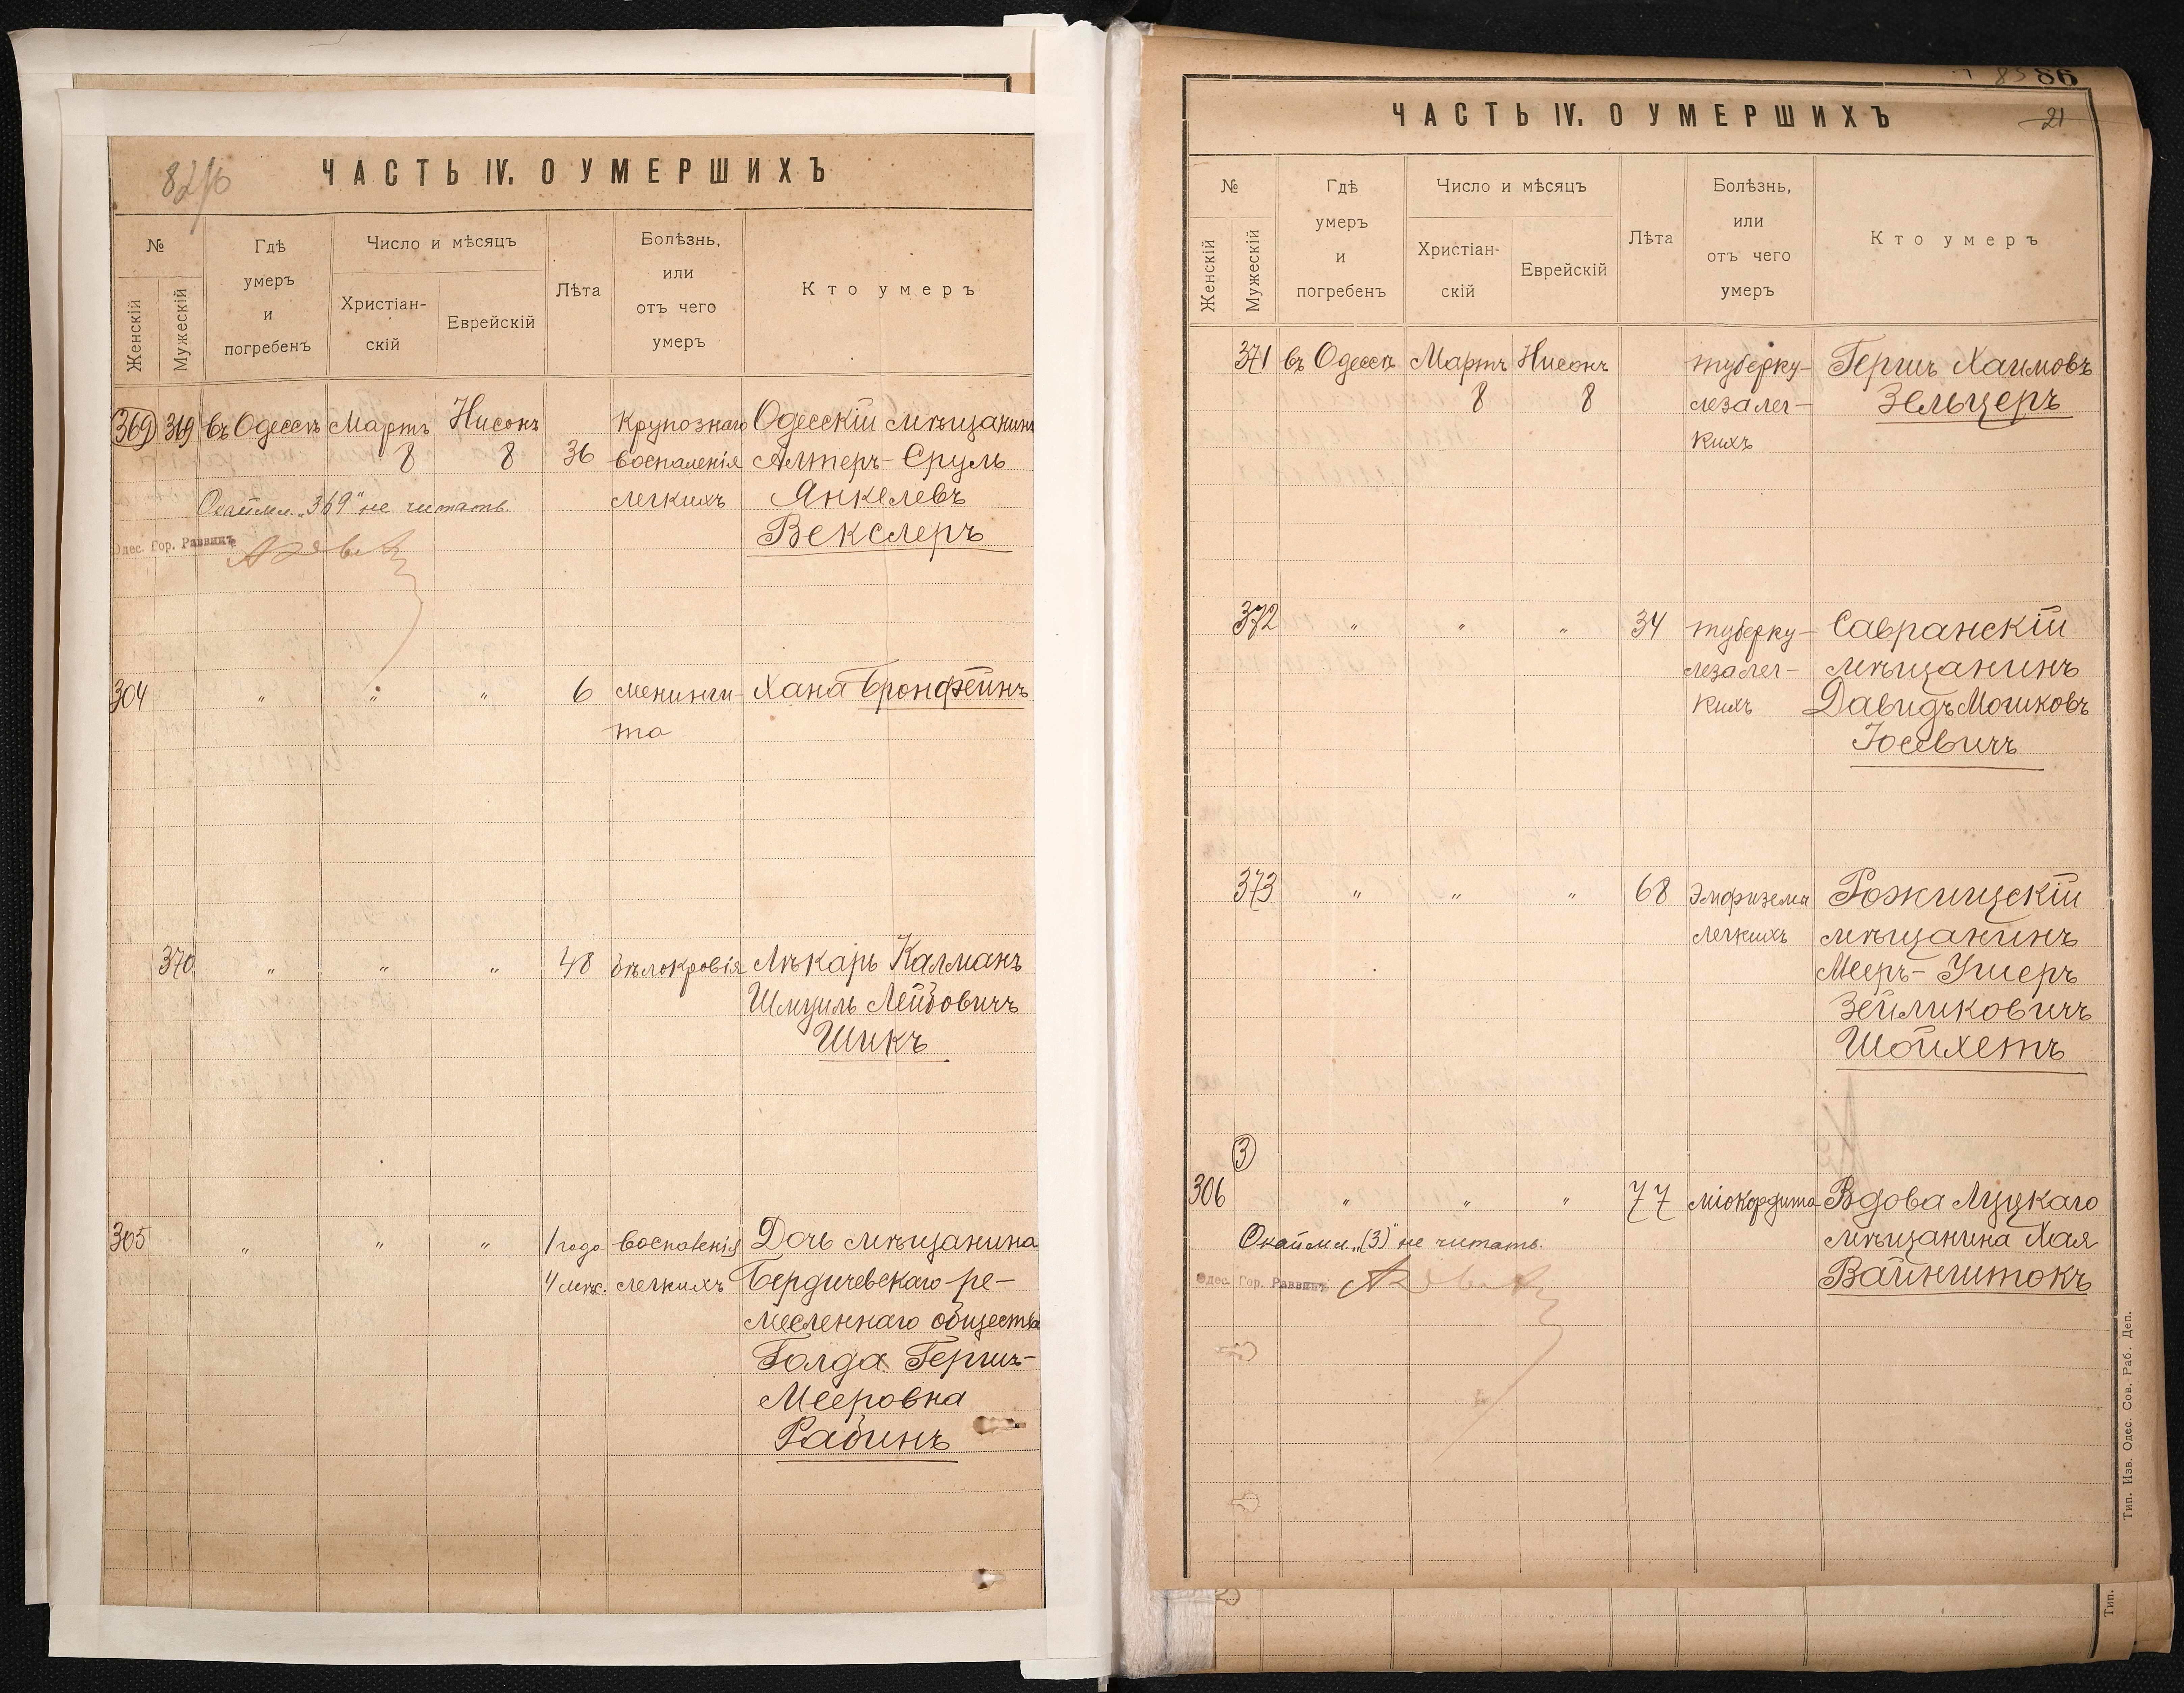 ЧАСТЬ IV. О УМЕРШИХЪ
№
Женскій
Мужескій
Гдѣ
умеръ
и
погребенъ
Число и мѣсяцъ
Христіан-
скій
Еврейскій
Лѣта
Болѣзнь,
или
отъ чего
умеръ
Кто умеръ
369 369 въ Одессѣ Мартъ Нисонъ Крупознаго Одесскій мѣщанинъ
8 8 36 воспаленія Алтеръ-Сруль
Окаймл. „369" не читать. легкихъ Янкелевъ
Одес. Гор. Раввинъ Векслеръ
304 " " " 6 менинги- Хана Бронфейнъ
та
370 " " " 48 бѣлокровія Лѣкарь Калманъ
Шмуиль Лейбовичъ
Шикъ
305 " " " 1 годо воспаленія Дочь мѣщанина
4 мѣс. легкихъ Бердичевскаго ре-
месленнаго общества
Голда Гершъ-
Мееровна
Рабинъ
86
21
ЧАСТЬ IV. О УМЕРШИХЪ
№
Женскій
Мужескій
Гдѣ
умеръ
и
погребенъ
Число и мѣсяцъ
Христіан-
скій
Еврейскій
Лѣта
Болѣзнь,
или
отъ чего
умеръ
Кто умеръ
371 въ Одессѣ Мартъ Нисонъ туберку- Гершъ Хаимовъ
8 8 леза лег- Зельцеръ
кихъ
372 " " " 34 туберку- Савранскій
леза лег- мѣщанинъ
кихъ Давидъ Мошковъ
Іосевичъ
373 " " " 68 Эмфиземы Рожищскій
легкихъ мѣщанинъ
Мееръ-Ушеръ
Зейликовичъ
Шойхетъ
3
306 " " " 77 міокардита Вдова Луцкаго
Окаймл. „(3)" не читать. мѣщанина Хая
Одес. Гор. Раввинъ Вайнштокъ
Тип. Изв. Одес. Сов. Раб. Деп.
Тип.